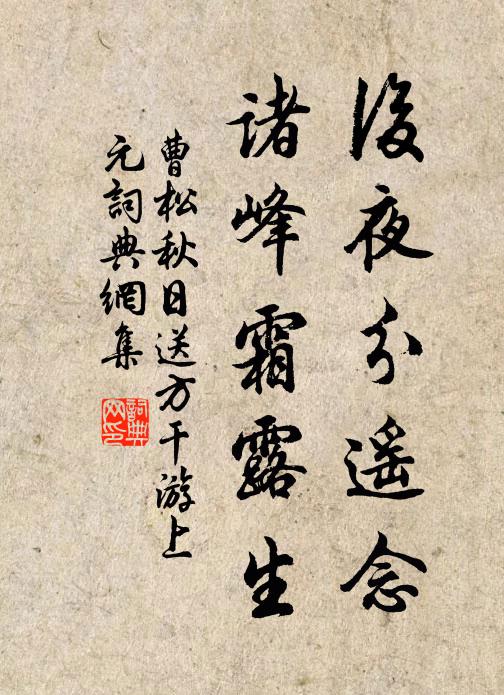 後夜分遥念
诸峰霜露生
曹松秋日送方干游上
元詞典網集
詞典
网印